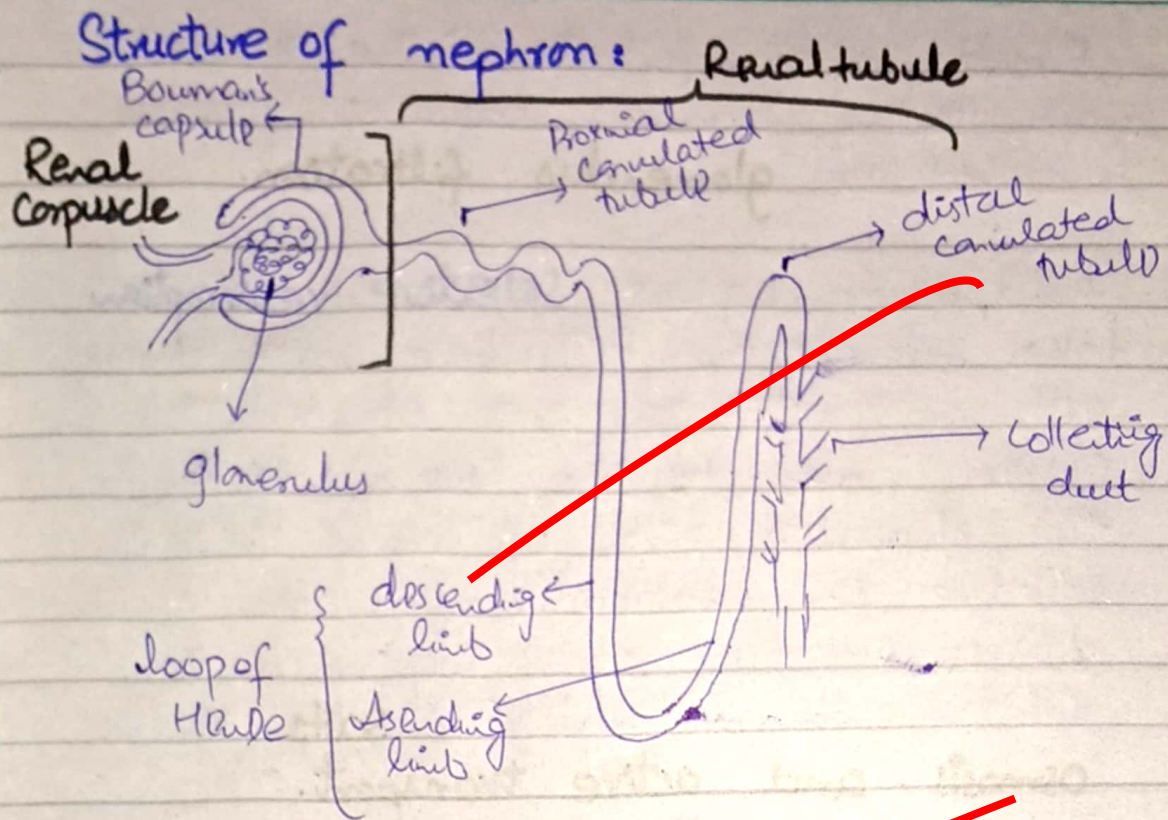 Structure of nephron:
Renal tubule
Bouman's
capsule
Renal
Corpuscle
Proxmial
convulated
tubule
distal
convulated
tubule
glomerulus
Collecting
duct
descending
limb
loop of
Henle
Asending
limb
osmosis and active transport.